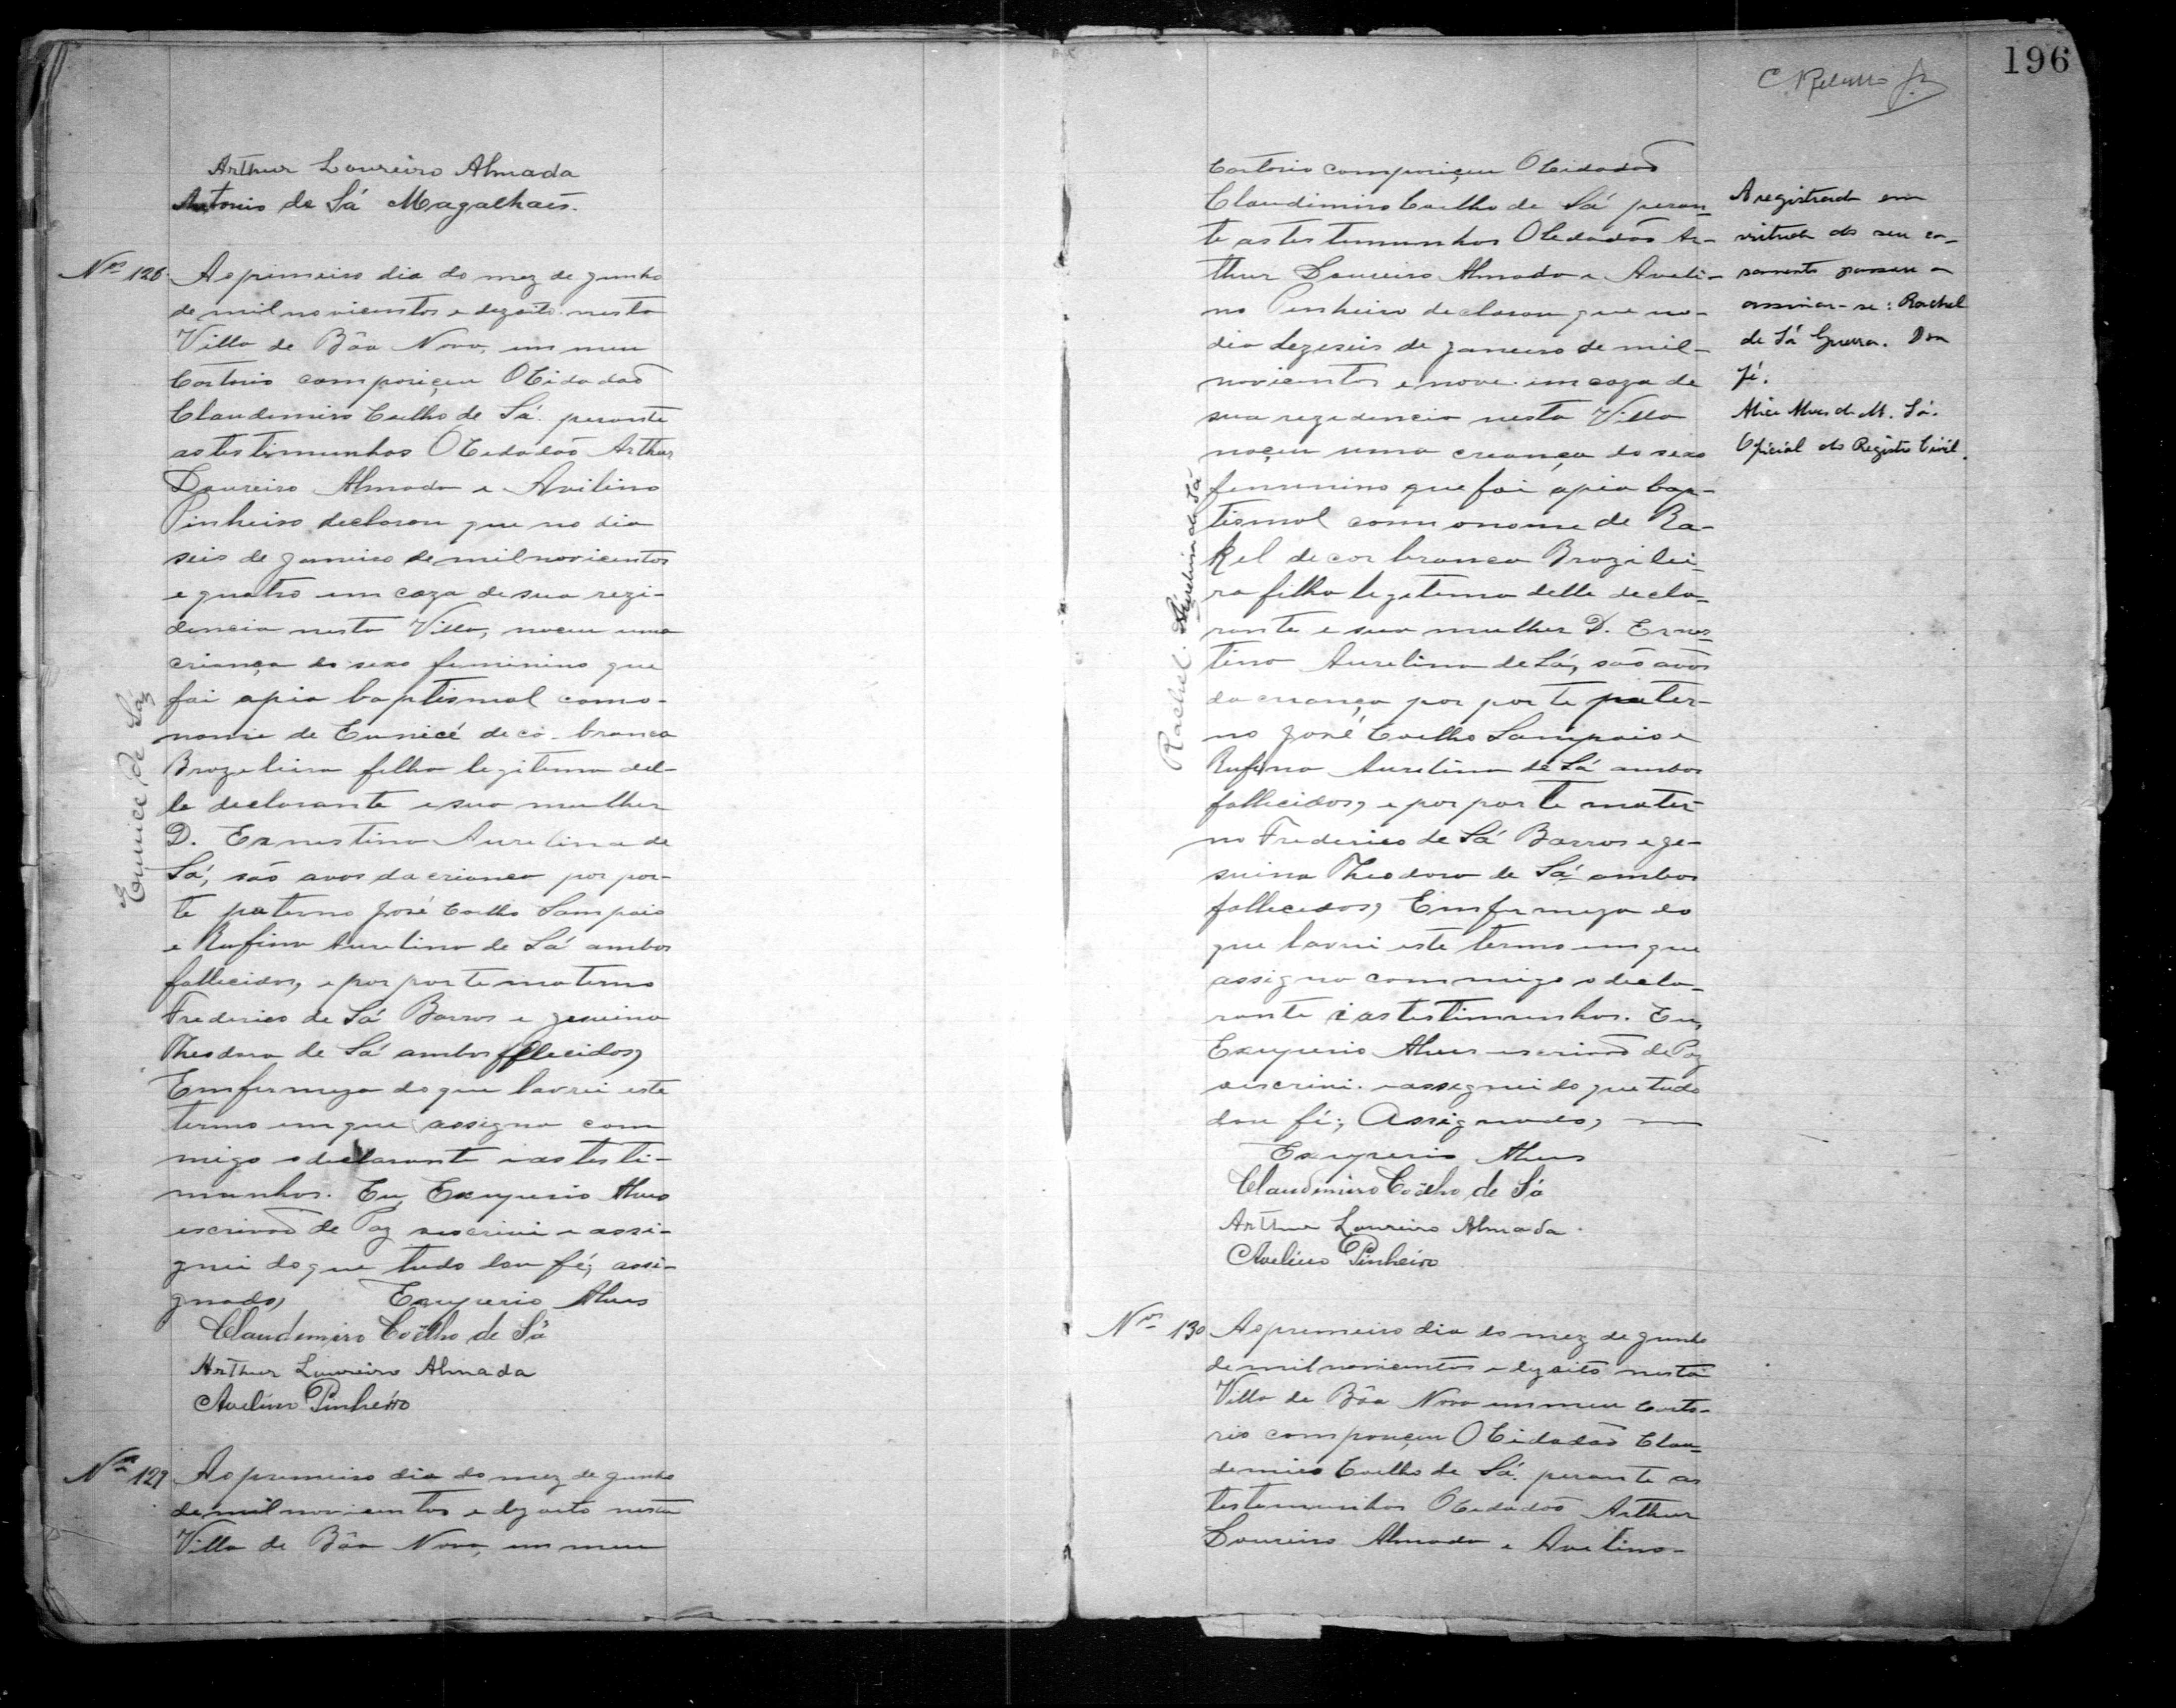 Arthur Loureiro Almada
Antonio de Sá Magalhães.
Nº 126. Ao primeiro dia do mez de junho
de mil novicentos e dezoito nesta
Villa de Bôa Nova, em meu
Cartorio compariçeu O Cidadaõ
Claudemiro Coelho de Sá perante
as testimunhas O Cidadaõ Arthur
Loureiro Almada e Avilino
Pinheiro declarou que no dia
seis de janeiro de mil novicentos
e quatro em caza de sua rezi-
dencia nesta Villa, naceu uma
criança do sexo feminino que
foi apia baptismal com o-
nome de Eunicé de cô branca
Brazeleira filha legitema del-
le declarante e sua mulher
D. Ernestina Aurelina de
Sá, saõ avos da crianca por par-
te paterno José Coelho Sampaio
e Rufina Aurelina de Sá ambos
fallecidos, e por parte materno
Frederico de Sá Barros e Jesuina
Theodora de Sá ambos fallecidos,
Emfirmeza do que lavrei este
termo em que assigna com
migo o declarante e as testi-
munhas. Eu, Exuperio Alves
escrivaõ de Paz suscrivi e assi-
gnei do que tudo dou fé; assi-
gnados, Exuperio Alves
Claudemiro Coêlho de Sá
Arthur Loureiro Almada
Avelino Pinheiro
Eunice de Sá
Nº 129 Ao primeiro dia do mez de junho
de mil novicentos e dezoito nesta
Villa de Bôa Nova, em meu
196
Cartorio compariçeu O Cidadaõ
Claudimiro Coelho de Sá peran-
te as testemunhas O Cidadaõ Ar-
thur Loureiro Almada e Aveli-
no Pinheiro declarou que no-
dia dezeseis de janeiro de mil-
novicentos e nove em caza de
sua rezedencia nesta Villa
naçeu uma creança do sexo
femenino que foi apia bap-
tismal com o nome de Ra-
kel de cor branca Brazilei-
ra filha legetema delle decla-
rante e sua mulher D. Ernes-
tina Aurelina de Sá, saõ avós
da criança por parte pater-
no José Coelho Sampaio e
Rufina Aurelina de Sá ambos
fallecidos, e por parte mater-
no Frederico de Sá Barros e Je-
suina Theodora de Sá ambos
fallecedos, Emfirmeza do
que lavrei este termo em que
assigna commigo o decla-
rante e as testimunhas. Eu,
Exuperio Alves escrivaõ de Paz
suscrivi e assegnei do que tudo
dou fé; Assignados,
Exuperio Alves
Claudimiro Coêlho de Sá
Arthur Loureiro Almada
Avelino Pinheiro
Rachel Aurelina de Sá
A registrada em
virtude do seu ca-
samento passou a
assinar-se: Rachel
de Sá Guerra. Dou
fé.
Alice Alves de M. Sá.
Oficial do Registro Civil.
Nº 130 Ao premeiro dia do mez de junho
de mil novicentos e dezoito nesta
Villa de Bôa Nova em meu Carto-
rio compareçeu O Cidadaõ Clau-
demiro Coelho de Sá perante as
testemunhas O Cidadaõ Arthur
Loureiro Almada e Avelino-